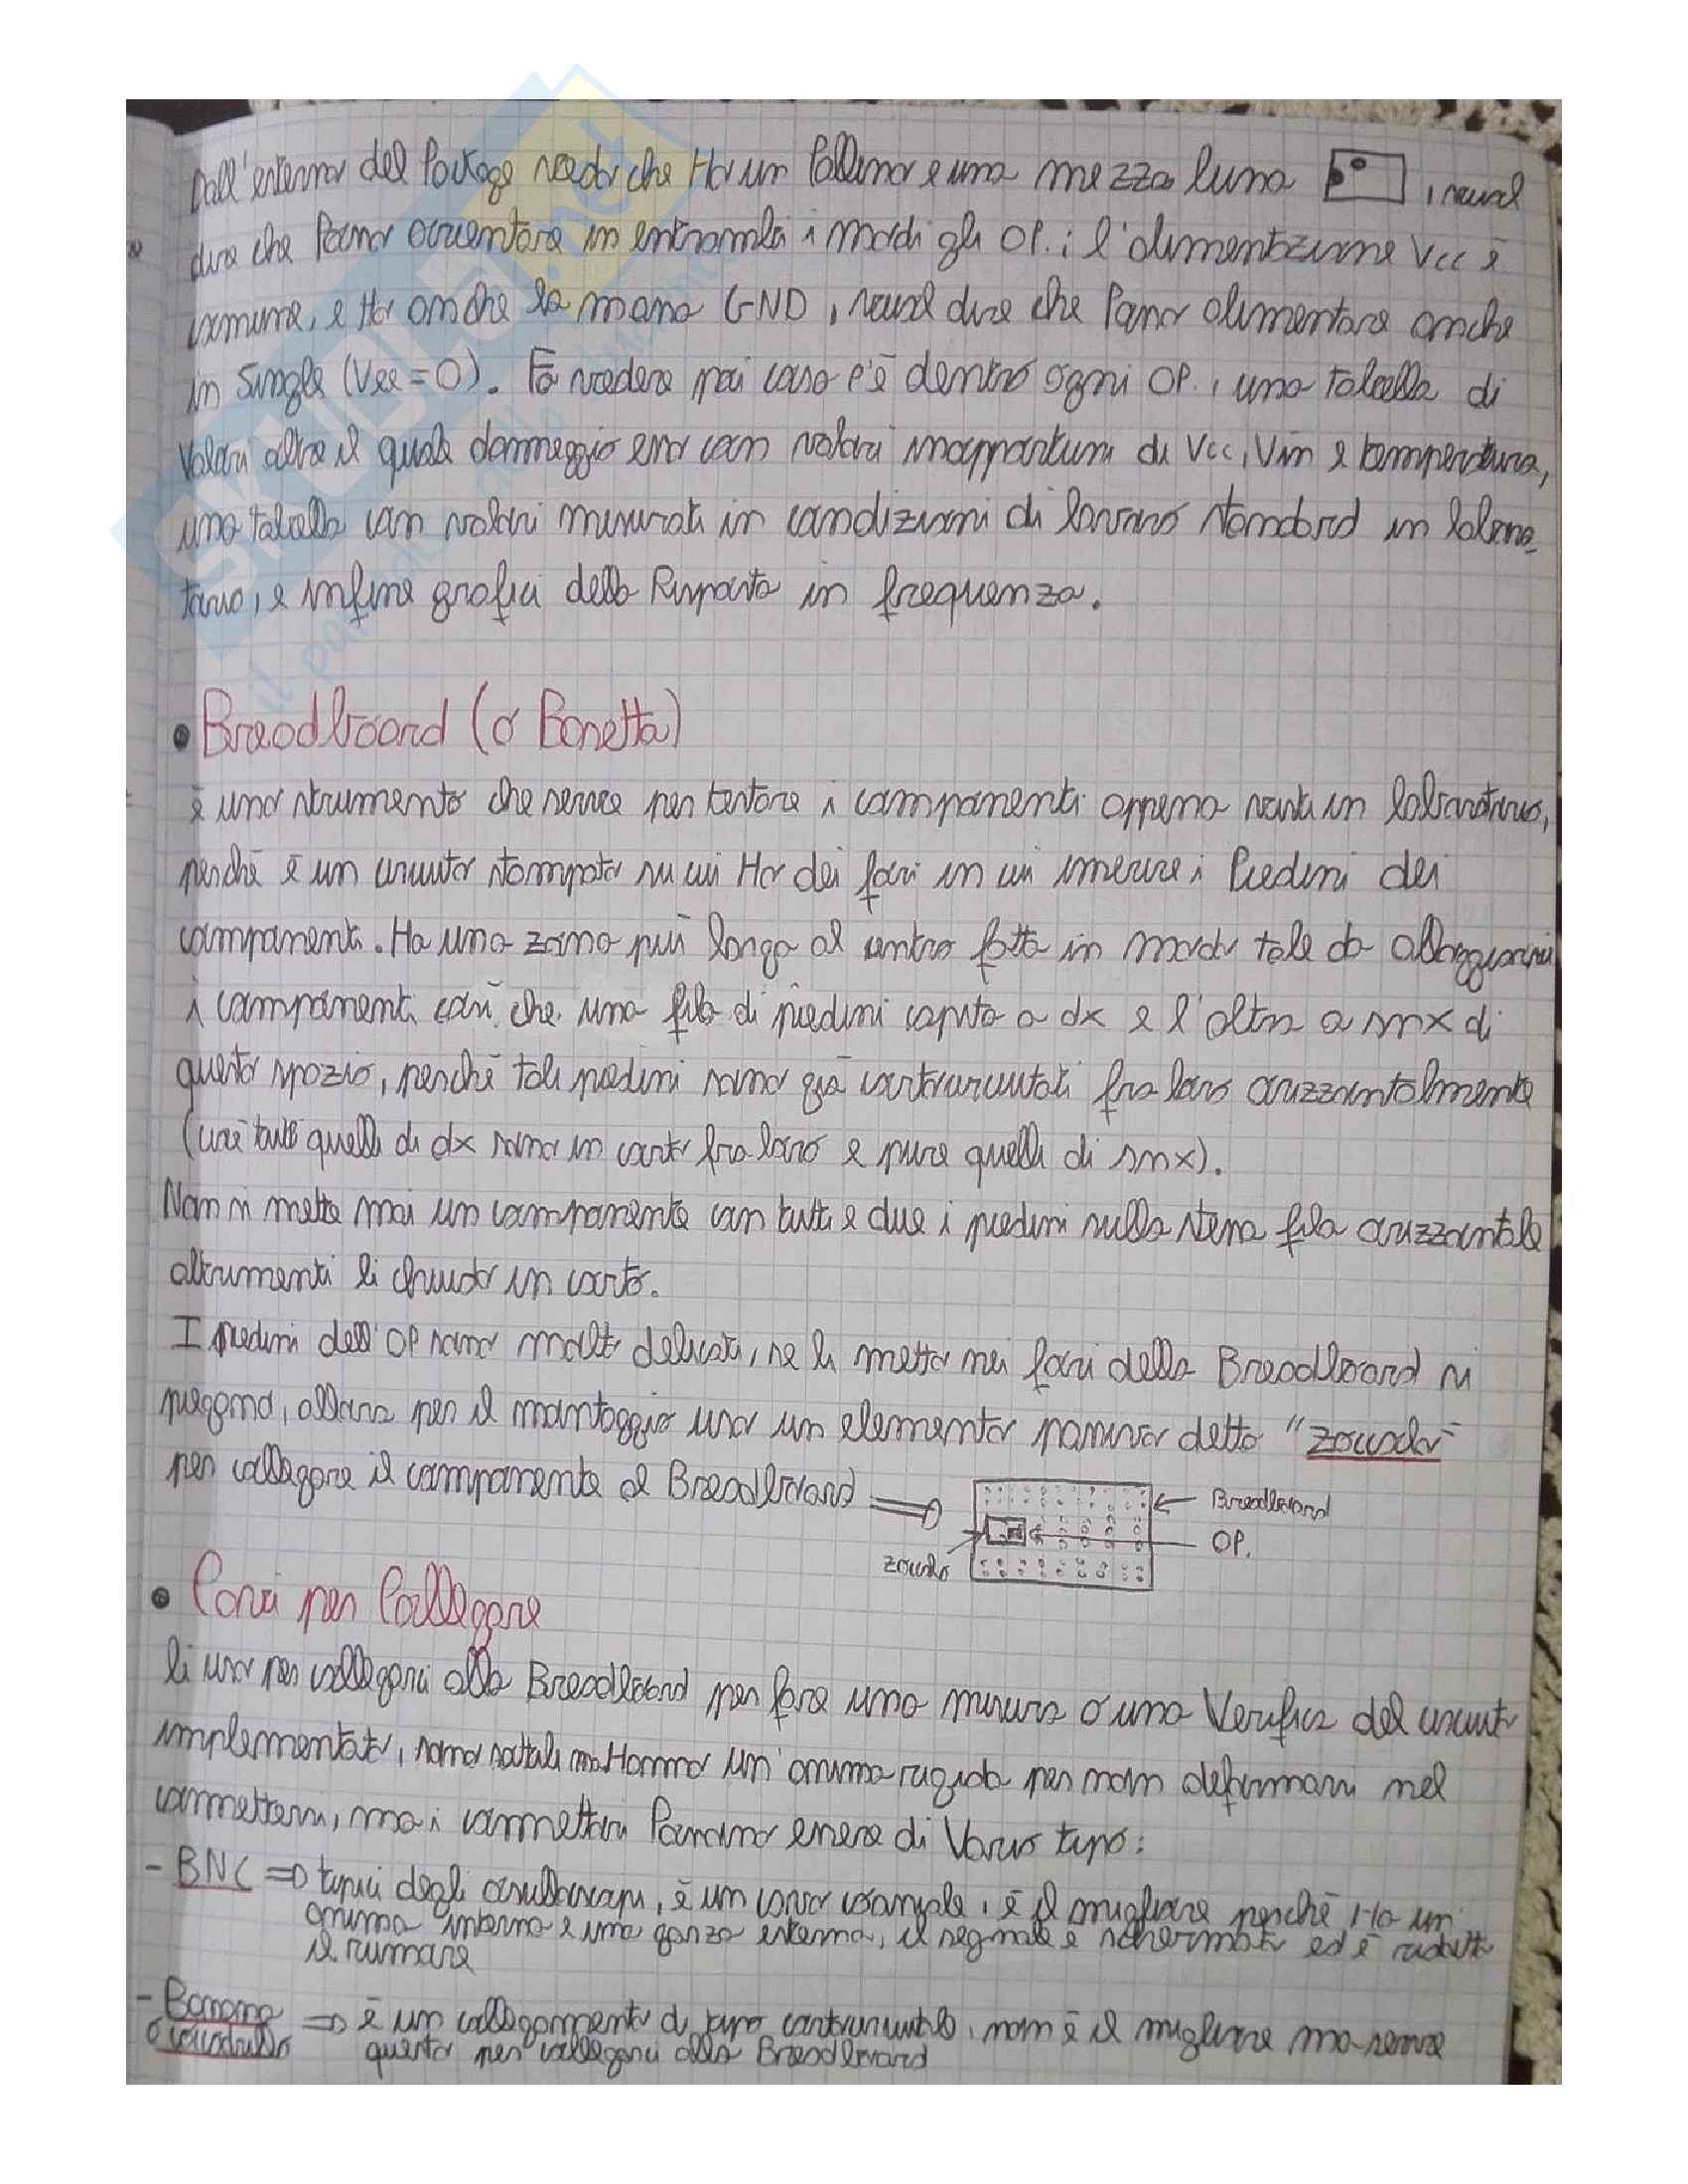 Dall'esterno del Package vedo che Ho un Pallino e una mezza luna , vuol
dire che Posso orientare in entrambi i modi gli OP. ; l'alimentazione Vcc è
comune, e Ho anche la massa GND, vuol dire che Posso alimentare anche
in Single (Vee=0). Fa vedere poi cosa c'è dentro ogni OP., una tabella di
Valori oltre il quale danneggio esso con valori inopportuni di Vcc, Vin e temperatura,
una tabella con valori misurati in condizioni di lavoro standard in labora-
torio, e infine grafici della Risposta in frequenza.
• Breadboard (o Basetta)
è uno strumento che serve per testare i componenti appena visti in laboratorio,
perché è un circuito stampato su cui Ho dei fori in cui inserire i Piedini dei
componenti. Ha una zona più larga al centro fatta in modo tale da alloggiarvi
i componenti così che una fila di piedini capita a dx e l'altra a snx di
questo spazio, perché tali piedini sono già cortocircuitati fra loro orizzontalmente
(cioè tutti quelli di dx sono in corto fra loro e pure quelli di snx).
Non si mette mai un componente con tutti e due i piedini sulla stessa fila orizzontale
altrimenti li chiudo in corto.
I piedini dell'OP sono molto delicati, se li metto nei fori della Breadboard si
piegano, allora per il montaggio uso un elemento passivo detto "zoccolo"
per collegare il componente al Breadboard ⇒
Breadboard
OP.
zoccolo
• Cavi per Collegare
li uso per collegarci alla Breadboard per fare una misura o una Verifica del circuito
implementato, sono sottili ma Hanno un'anima rigida per non deformarsi nel
connettersi, ma i connettori Possono essere di Vario tipo:
- BNC ⇒ tipici degli oscilloscopi, è un cavo coassiale, è il migliore perché Ha un'
anima interna e una garza esterna, il segnale è schermato ed è ridotto
il rumore
- Banana ⇒ è un collegamento di tipo cortocircuitale, non è il migliore ma serve
o coccodrillo questo per collegarci alla Breadboard